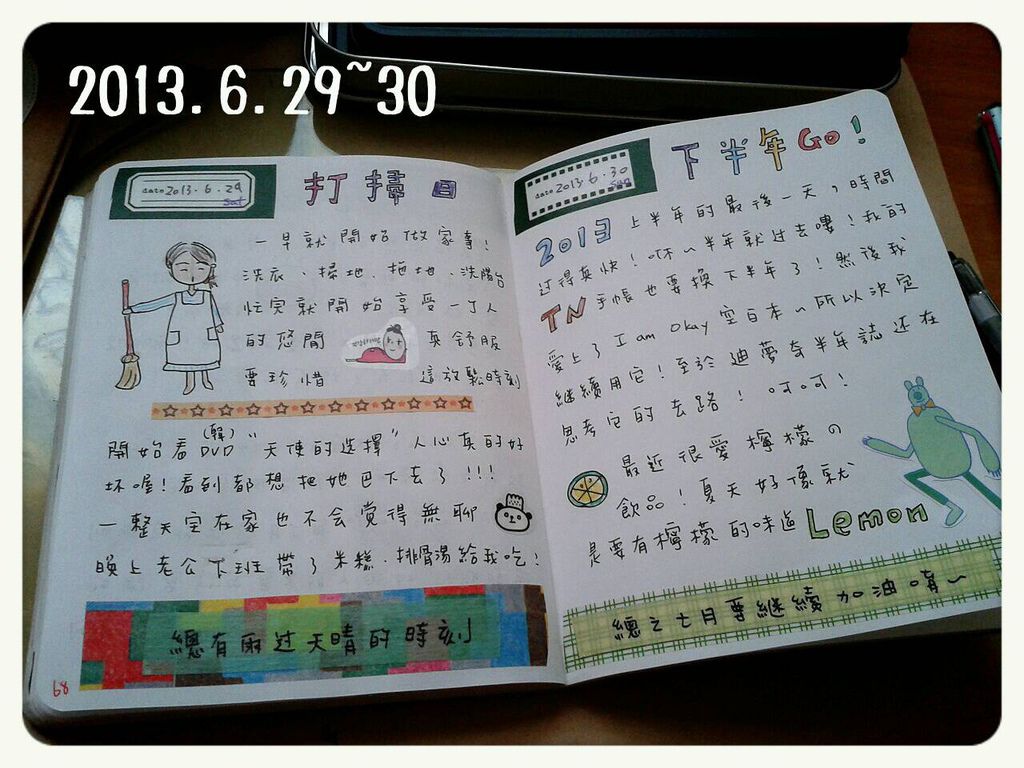 2013.6.29~30
date 2013.6.29
Sat
打掃日
一早就開始做家事!
洗衣、掃地、拖地、洗陽台
忙完就開始享受一丁人
的悠閒 真舒服
要珍惜 這放鬆時刻
開始看DVD(韓)"天使的選擇"人心真的好
坏喔!看到都想把她巴下去了!!!
一整天宅在家也不会覺得無聊
晚上老公下班帶了米糕、排骨湯給我吃!
總有雨过天晴的時刻
68
date 2013.6.30
Sun
下半年Go!
2013上半年的最後一天,時間
过得真快!咻~半年就过去嘍!我的
TN手帳也要換下半年了!然後我
愛上了I am Okay空白本~所以決定
継續用它!至於迪夢奇半年誌还在
思考它的去路!呵呵!
最近很愛檸檬の
飲品!夏天好像就
是要有檸檬的味道Lemon
總之七月要継續加油唷~